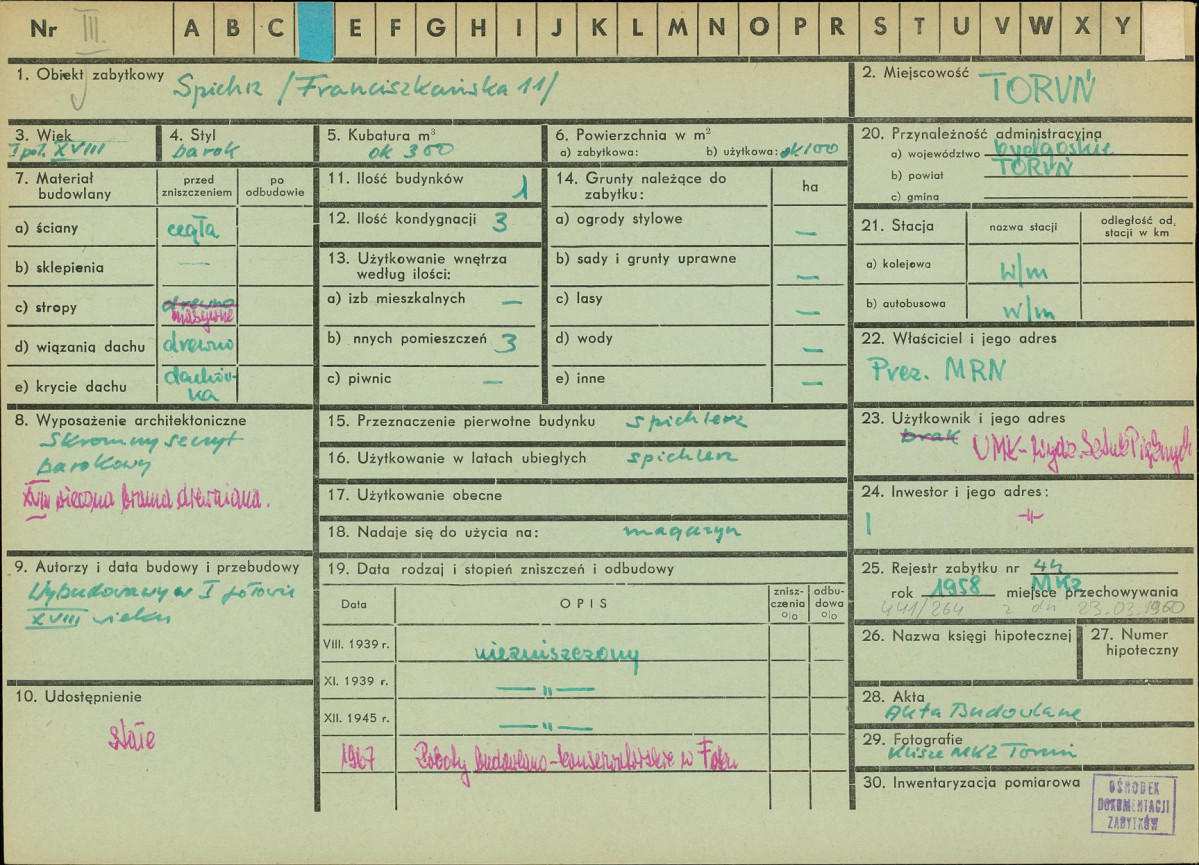 Nr III. A B C E F G H I J K L M N O P R S T U V W X Y
1. Obiekt zabytkowy Spichrz /Franciszkańska 11/
2. Miejscowość TORUŃ
3. Wiek I poł. XVIII
4. Styl barok
5. Kubatura m³ ok 300
6. Powierzchnia w m²
a) zabytkowa: b) użytkowa: ok 100
7. Materiał budowlany
przed zniszczeniem
po odbudowie
a) ściany cegła
b) sklepienia —
c) stropy drewno masywne
d) wiązania dachu drewno
e) krycie dachu dachówka
8. Wyposażenie architektoniczne
Skromny szczyt
barokowy
XVIII wieczna brama drewniana.
9. Autorzy i data budowy i przebudowy
Wybudowany w I połowie
XVIII wieku
10. Udostępnienie
stałe
11. Ilość budynków 1
12. Ilość kondygnacji 3
13. Użytkowanie wnętrza
według ilości:
a) izb mieszkalnych —
b) nnych pomieszczeń 3
c) piwnic —
14. Grunty należące do
zabytku: ha
a) ogrody stylowe —
b) sady i grunty uprawne —
c) lasy —
d) wody —
e) inne —
15. Przeznaczenie pierwotne budynku spichlerz
16. Użytkowanie w latach ubiegłych spichlerz
17. Użytkowanie obecne
18. Nadaje się do użycia na: magazyn
19. Data rodzaj i stopień zniszczeń i odbudowy
Data OPIS zniszczenia o/o odbudowa o/o
VIII. 1939 r. niezniszczony
XI. 1939 r. — " —
XII. 1945 r. — " —
1967 Roboty budowlano-konserwatorskie w toku
20. Przynależność administracyjna
a) województwo bydgoskie
b) powiat TORUŃ
c) gmina
21. Stacja nazwa stacji odległość od. stacji w km
a) kolejowa w/m
b) autobusowa w/m
22. Właściciel i jego adres
Prez. MRN
23. Użytkownik i jego adres
brak UMK - Wydz. Sztuk Pięknych
24. Inwestor i jego adres:
-"-
25. Rejestr zabytku nr 44
rok 1958 miejsce przechowywania MKZ
441/264 z dn 23.03.1960
26. Nazwa księgi hipotecznej
27. Numer hipoteczny
28. Akta
Akta Budowlane
29. Fotografie
Klisze MKZ Toruń
30. Inwentaryzacja pomiarowa
OŚRODEK
DOKUMENTACJI
ZABYTKÓW